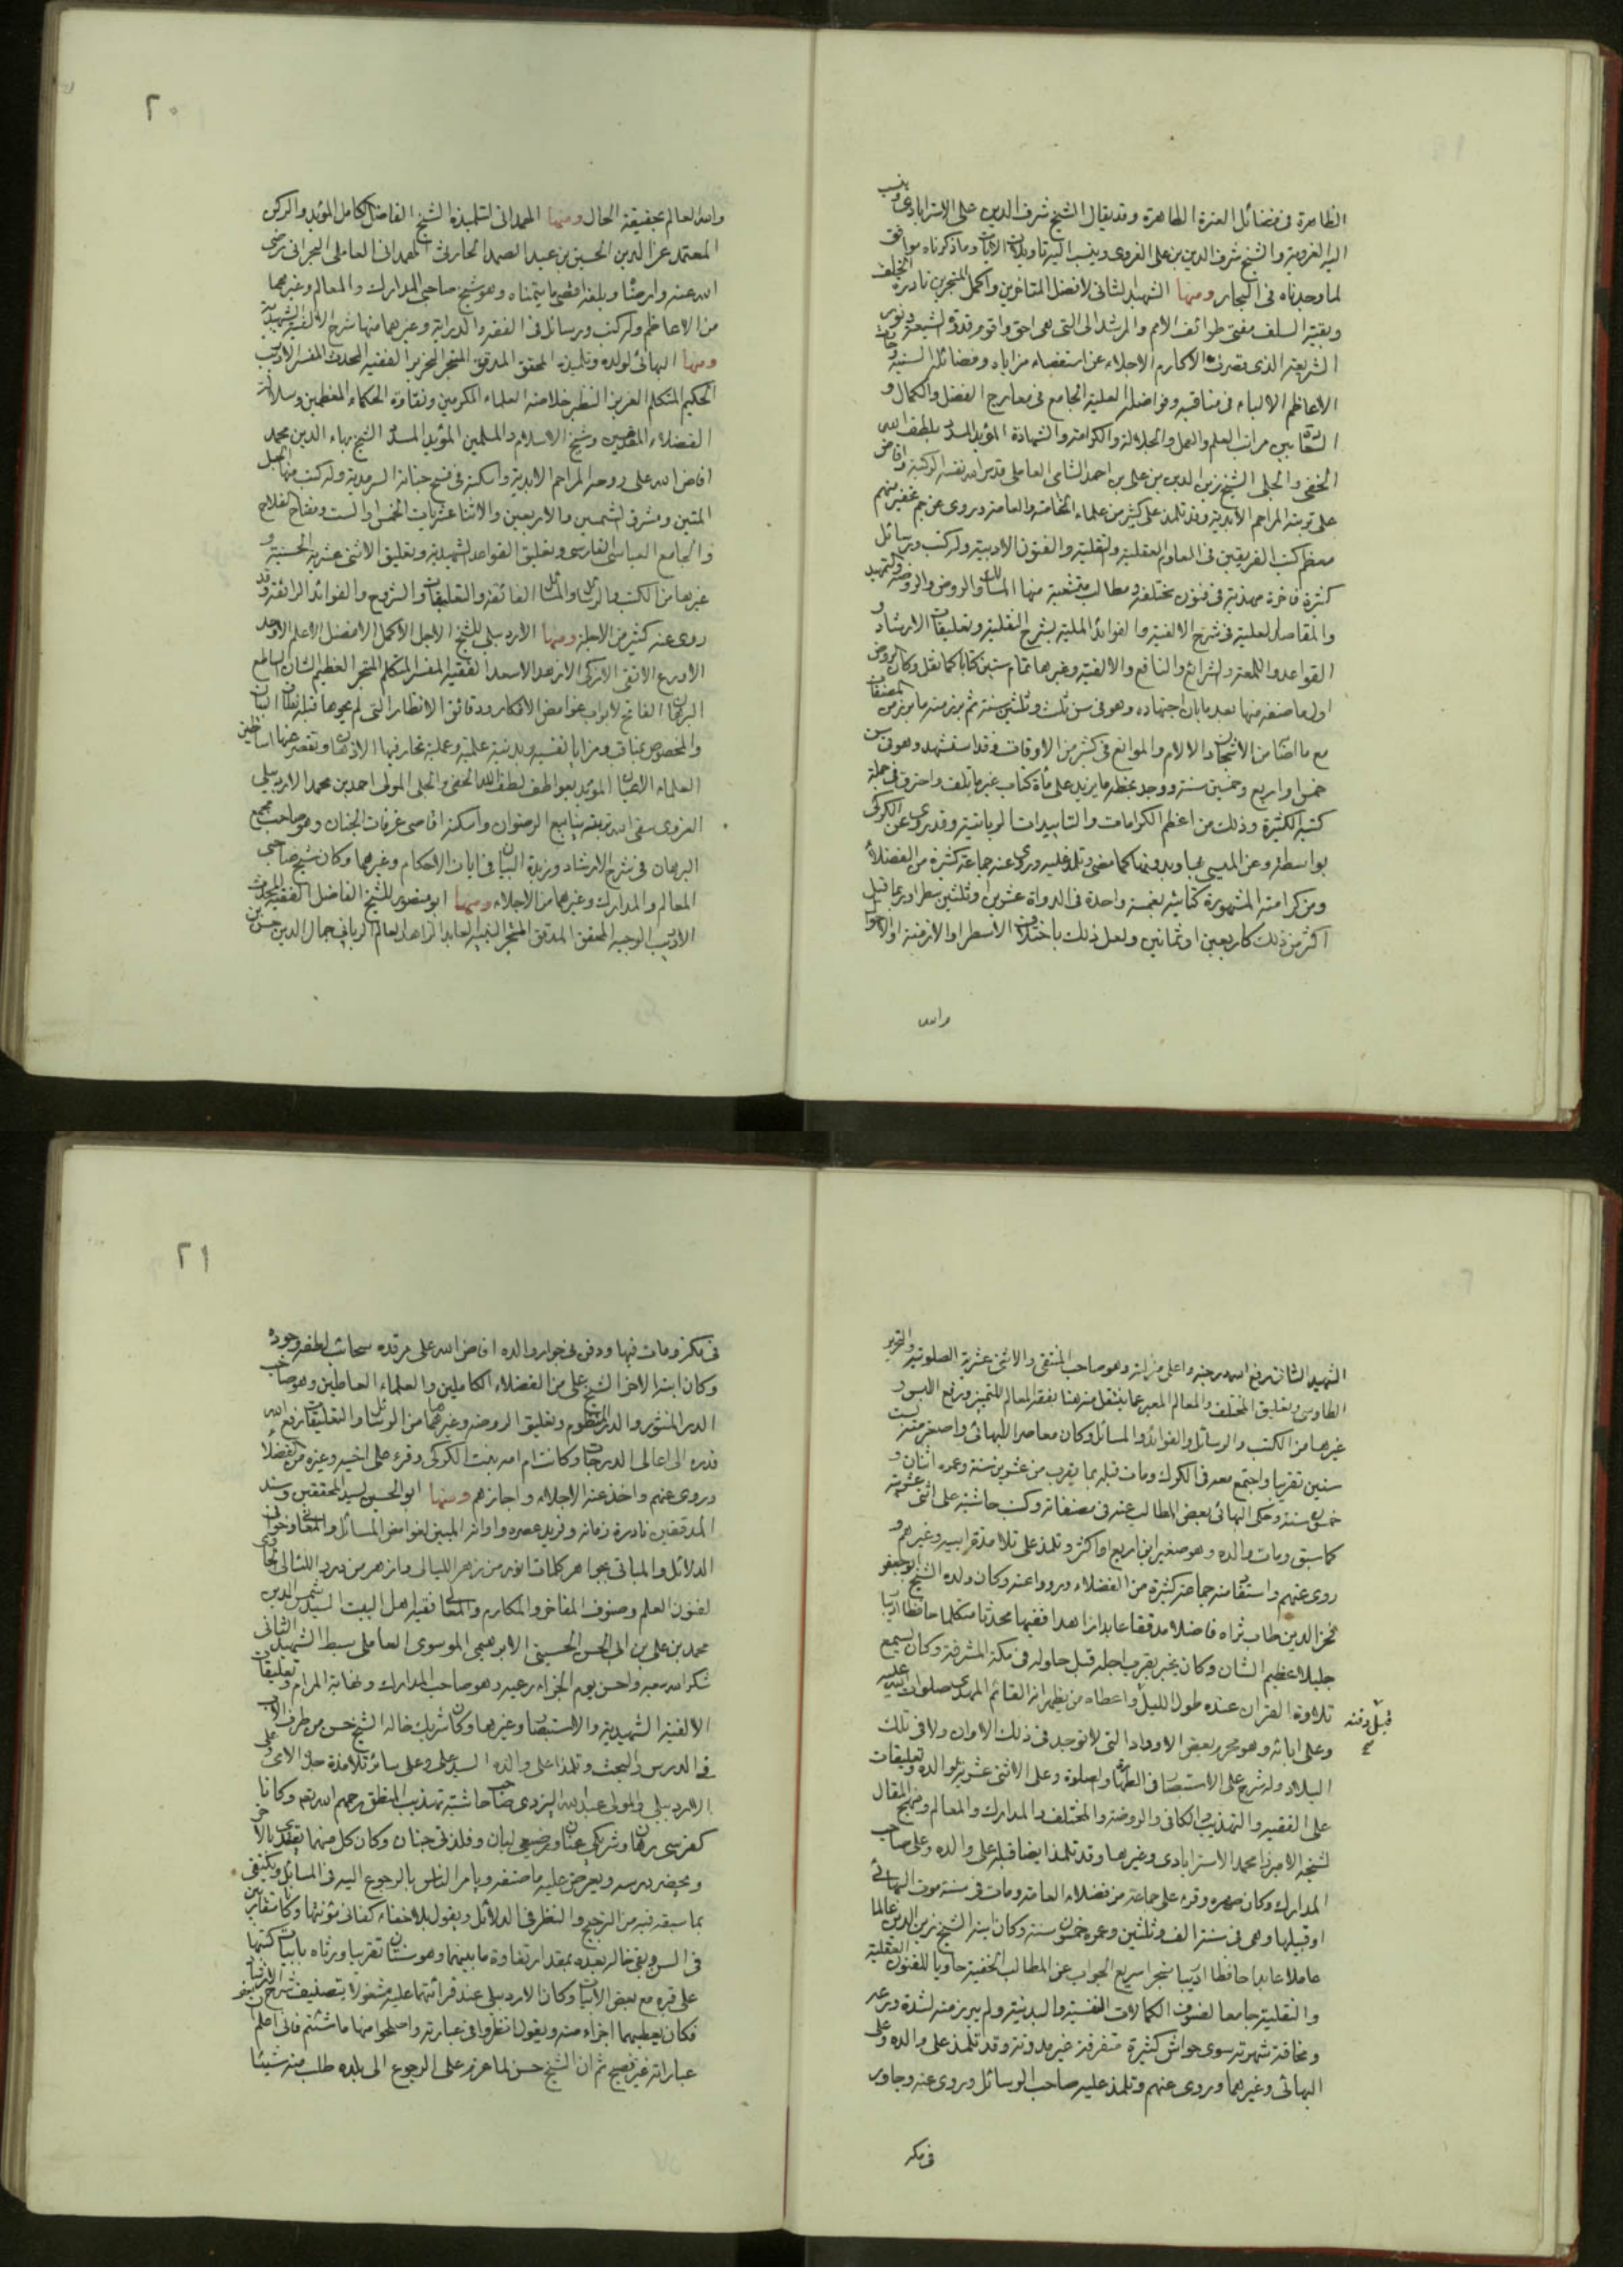 الظاهرة في فضائل العترة الطاهرة وقد يقال الشيخ شرف الدين علي الاسترابادي وينسب
اليه الغروية والشيخ شرف الدين بن علي الغروي وينسب اليه تاويل الايات وما ذكرناه موافق
لما وجدناه في البحار ومنها الشهيد الثاني لافضل المتاخرين واكمل المتبحرين نادرة الخلف
وبقية السلف مفتي طوائف الامم والمرشد الى التي هي احق واقوم قدوة الشيعة ونور
الشريعة الذي قصرت الاكارم الاجلاء عن استقصاء مزاياه وفضائله السنية
الاعاظم الالباء في مناقبه وفواضله العلية الجامع في معارج الفضل والكمال و
السعادة بين مراتب العلم والعمل والجلالة والكرامة والشهادة المؤيد المسدد بلطف الله
الخفي والجلي الشيخ زين الدين بن علي بن احمد الشامي العاملي قدس الله نفسه الزكية وافاض
على تربته المراحم الابدية وقد تلمذ على كثير من علماء الخاصة والعامة وروى عن جم غفير منهم
معظم كتب الفريقين في العلوم العقلية والنقلية والفنون الادبية وله كتب ورسائل
كثيرة فاخرة مهذبة في فنون مختلفة ومطالب متشعبة منها المسالك والروض والروضة والتمهيد
والمقاصد العلية في شرح الالفية والفوائد الملية بشرح النفلية وتعليقات الارشاد و
القواعد واللمعة والشرائع والنافع والالفية وغيرها تمام ستين كتابا كما نقل وكان الروض
اول ما صنفه منها بعد ما بان اجتهاده وهو في سن ثلث وثلثين سنة ثم برز منه ما برز من المصنفات
مع ما اصابه من الاشجان والالام والموانع في كثير من الاوقات وقد استشهد وهو في سن
خمس او اربع وخمسين سنة ووجد بخطه ما يزيد على مأة كتاب غير ما تلف واحترق في جملة
كتبه الكثيرة وذلك من اعظم الكرامات والتاييدات الربانية وقد يروي عن الكركي
بواسطة وعن الميسي بها وبدونها كما مضى وتلمذ عليه وروى عنه جماعة كثيرة من الفضلاء
ومن كراماته المشهورة كتابته بغمسة واحدة في الدواة عشرين او ثلثين سطرا وربما قيل
اكثر من ذلك كاربعين او ثمانين ولعل ذلك باختلاف الاسطر او الازمنة او الاحوال
والله
٢٠
والله العالم بحقيقة الحال ومنها الهمداني لتلميذه الشيخ الفاضل الكامل المؤيد والركن
المعتمد عز الدين الحسين بن عبد الصمد الحارثي الهمداني العاملي البحراني رضي
الله عنه وارضاه وبلغه اقصى ما يتمناه وهو شيخ صاحبي المدارك والمعالم وغيرهما
من الاعاظم وله كتب ورسائل في الفقه والدراية وغيرهما منها شرح الالفية الشهيدية
ومنها البهائي لولده وتلميذه المحقق المدقق المتبحر النحرير الفقيه المحدث المفسر الاديب
الحكيم المتكلم العزيز النظير خلاصة العلماء المكرمين ونقاوة الحكماء المعظمين وسلالة
الفضلاء المقدسين وشيخ الاسلام والمسلمين المؤيد المسدد الشيخ بهاء الدين محمد
افاض الله على روحه المراحم الابدية واسكنه في فسيح جنانه السرمدية وله كتب منها الحبل
المتين ومشرق الشمسين والاربعين والاثنا عشريات الخمس او الست ومفتاح الفلاح
والجامع العباسي الفارسي وتعليق القواعد الشهيدية وتعليق الاثني عشرية الحسنية و
غيرها من الكتب والرسائل والمسائل الفائقة والتعليقات والشروح والفوائد الرائقة وقد
روى عنه كثير من الاجلة ومنها الاردبيلي للشيخ الاجل الاكمل الافضل الاعلم الاوحد
الاورع الاتقى الازكى الازهد الاسعد الفقيه المفسر المتكلم المتبحر العظيم الشان الساطع
البرهان الفاتح لابواب غوامض الافكار ودقائق الانظار التي لم يحم حولها قبله
والمخصوص بمناقب ومزايا نفسية وبدنية علمية وعملية تحار فيها الاذهان وتقصر عنها اساطين
العلماء الاعيان المؤيد بعواطف لطف الله الخفي والجلي المولى احمد بن محمد الاردبيلي
الغروي سقى الله تربته ينابيع الرضوان واسكنه اقاصي غرفات الجنان وهو صاحب مجمع
البرهان في شرح الارشاد وزبدة البيان في ايات الاحكام وغيرهما وكان شيخ صاحبي
المعالم والمدارك وغيرهما من الاجلاء ومنها ابو منصور للشيخ الفاضل الفقيه المحدث
الاديب الوجيه المحقق المدقق المتبحر النبيه العابد الزاهد العالم الرباني جمال الدين حسن بن
الشهيد الثاني رفع الله درجته واعلى منزلته وهو صاحب المنتقى والاثني عشرية الصلوتية والتحرير
الطاوسي وتعليق المختلف والمعالم المعبر عما ينقل منه هنا بفقه المعالم للتمييز ورفع اللبس و
غيرها من الكتب والرسائل والفوائد والمسائل وكان معاصرا للبهائي واصغر منه بست
سنين تقريبا واجتمع معه في الكرك ومات قبله بما يقرب من عشرين سنة وعمره اثنان و
خمسون سنة وحكى البهائي بعض المطالب عنه في مصنفاته وكتب حاشية على اثني عشريته
كما سبق ومات والده وهو صغير ابن اربع او اكثر وتلمذ على تلامذة ابيه وغيرهم و
روى عنهم واستفاد منه جماعة كثيرة من الفضلاء ورووا عنه وكان ولده الشيخ ابو جعفر
فخر الدين طاب ثراه فاضلا مدققا عابدا زاهدا فقيها محدثا متكلما حافظا اديبا
جليلا عظيم الشان وكان يخبر بقرب اجله قبل حلوله في مكة المشرفة وكان يسمع
تلاوة القران عنده طول الليل واعطاه من يظهر انه القائم المهدي صلوات الله عليه
قبل دفنه
وعلى ابائه وهو محرم بعض الاوراد التي لا توجد في ذلك الاوان ولا في تلك
البلاد وله شرح على الاستبصار في الطهارة والصلوة وعلى الاثني عشرية لوالده وتعليقات
على الفقيه والتهذيب والكافي والروضة والمختلف والمدارك والمعالم ومنهج المقال
لشيخه الاميرزا محمد الاسترابادي وغيرها وقد تلمذ ايضا قبله على والده وعلى صاحب
المدارك وكان صهره وقرء على جماعة من فضلاء العامة ومات في سنة موت البهائي
او قبلها وهي في سنة الف وثلثين وعمره خمسون سنة وكان ابنه الشيخ زين الدين عالما
عاملا عابدا حافظا اديبا متبحرا سريع الجواب عن المطالب الخفية حاويا للفنون العقلية
والنقلية جامعا لصنوف الكمالات النفسية والبدنية ولم يبرز منه لشدة ورعه
ومخافة شهرته سوى حواش كثيرة متفرقة غير مدونة وقد تلمذ على والده وعلى
البهائي وغيرهما وروى عنهم وتلمذ عليه صاحب الوسائل وروى عنه وجاور
في مكة
٢١
في مكة ومات فيها ودفن في جوار والده افاض الله على مرقده سحائب لطفه وجوده
وكان ابنه الاخر الشيخ علي من الفضلاء الكاملين والعلماء العاملين وهو صاحب
الدر المنثور والدر المنظوم وتعليق الروضة وغيرهما من الرسائل والتعليقات رفع الله
قدره الى اعالي الدرجات وكانت ام امه بنت الكركي وقرء على اخيه وغيره من الفضلاء
وروى عنهم واخذ عنه الاجلاء واجازهم ومنها ابو الحسن لسيد المحققين وسند
المدققين نادرة زمانه وفريد عصره واوانه المبين لغوامض المسائل والمعاني وخوافي
الدلائل والمباني بجواهر كلمات انور من زهر الليالي وازهر من درر اللئالي
لفنون العلم وصنوف المفاخر والمكارم والمعالي فقيه اهل البيت السيد شمس الدين
محمد بن علي بن ابي الحسن الحسيني الابرهيمي الموسوي العاملي سبط الشهيد الثاني
شكر الله سعيه واحسن يوم الجزاء رعيه وهو صاحب المدارك ونهاية المرام وتعليقات
الالفية الشهيدية والاستبصار وغيرها وكان شريك خاله الشيخ حسن من طرف الام
في الدرس والبحث وتلمذا على والده السيد علي وعلى سائر تلامذة جده الامي وعلى
الاردبيلي والمولى عبد الله اليزدي صاحب حاشية تهذيب المنطق رحمهم الله تعم وكانا
كفرسي رهان وشريكي عنان ورضيعي لبان وفلذتي جنان وكان كل منهما يقتدي بالاخر
ويحضر درسه ويعرض عليه ما صنفه ويامر الناس بالرجوع اليه في المسائل ويكتفي
بما سبقه فيه من الترجيح والنظر في الدلائل ويقول للاخفاء كفاني مؤنتها وكانا متقاربين
في السن وبقي خاله بعده بمقدار تفاوت ما بينهما وهو سنتان تقريبا ورثاه بابيات كتبها
على قبره مع بعض الايات وكان الاردبيلي عند قرائتهما عليه مشغولا بتصنيف شرح الارشاد
فكان يعطيهما اجزاء منه ويقول انظروا في عبارته واصلحوا منها ما شئتم فاني اعلم ان بعض
عباراته غير فصيح ثم ان الشيخ حسن لما عزم على الرجوع الى بلده طلب منه شيئا